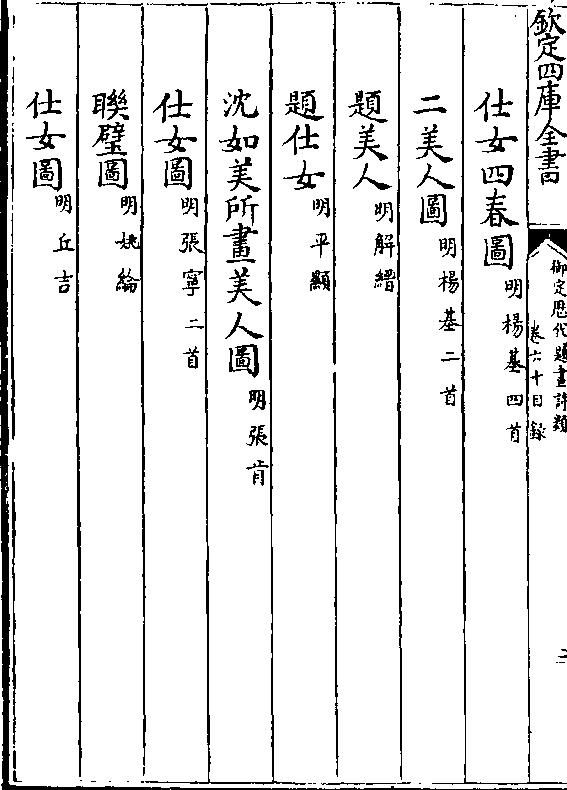 欽定四庫全書
御定歷代題畫詩類
卷六十目錄
二
仕女四春圖 明楊基四首
二美人圖 明楊基二首
題美人 明解縉
題仕女 明平顯
沈如美所畫美人圖 明張肯
仕女圖 明張寧二首
聯璧圖 明姚綸
仕女圖 明丘吉